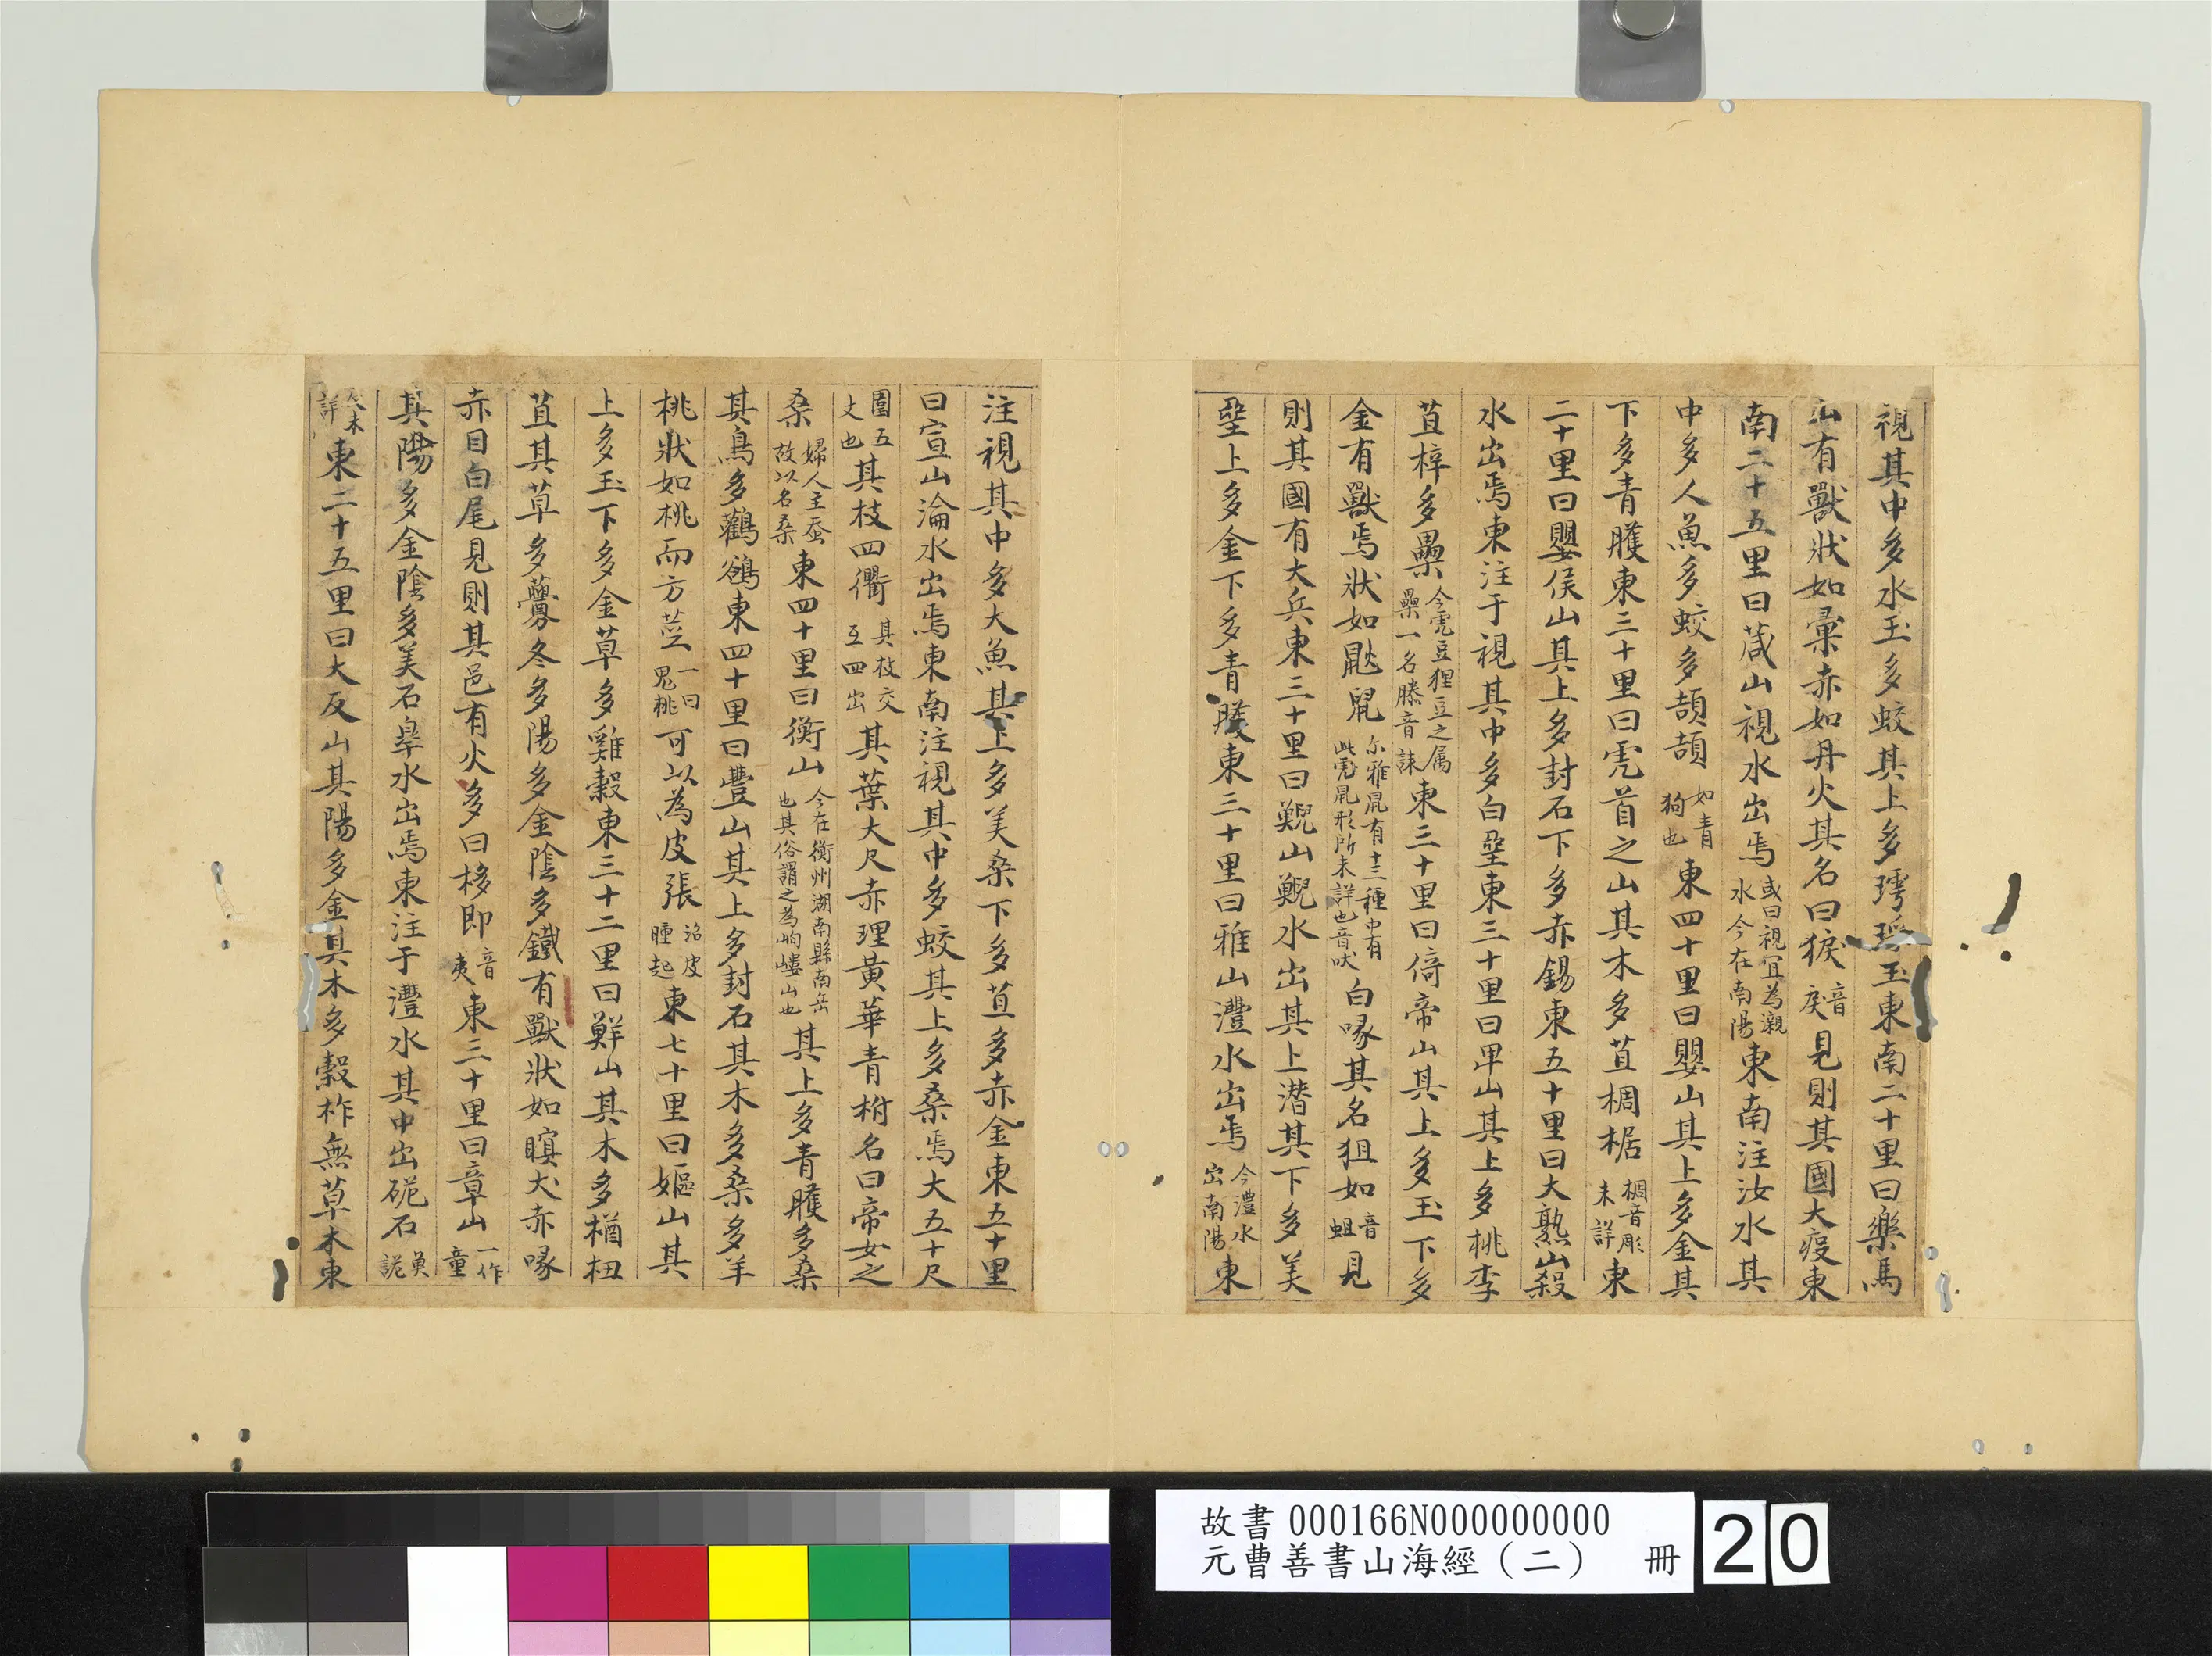 視其中多水玉多蛟其上多㻬琈玉東南二十里曰樂馬
山有獸狀如彙赤如丹火其名曰㹽音戾見則其國大疫東
南二十五里曰葴山視水出焉或曰視冝為瀙水今在南陽東南注汝水其
中多人魚多蛟多頡頡如青狗也東四十里曰嬰山其上多金其
下多青雘東三十里曰虎首之山其木多苴椆椐椆音彫未詳東
二十里曰嬰侯山其上多封石下多赤錫東五十里曰大孰山殺
水出焉東注于視其中多白堊東三十里曰卑山其上多桃李
苴梓多櫐今虎豆狸豆之属櫐一名縢音誄東三十里曰倚帝山其上多玉下多
金有獸焉狀如鼣鼠尒雅鼠有十三種中有此鼠形所未詳也音吠白喙其名狙如音蛆見
則其國有大兵東三十里曰鯢山鯢水出其上潜其下多美
堊上多金下多青雘東三十里曰雅山灃水出焉今澧水出南陽東
注視其中多大魚其上多美桑下多苴多赤金東五十里
曰宣山淪水出焉東南注視其中多蛟其上多桑焉大五十尺
圍五丈也其枝四衢其枝交互四出其葉大尺赤理黃華青柎名曰帝女之
桑婦人主蚕故以名桑東四十里曰衡山今在衡州湖南縣南岳也其俗謂之為岣嶁山也其上多青雘多桑
其鳥多鸛鵒東四十里曰豐山其上多封石其木多桑多羊
桃狀如桃而方莖一曰鬼桃可以為皮張治皮腫起東七十里曰嫗山其
上多玉下多金草多雞穀東三十二里曰鮮山其木多楢杻
苴其草多虋冬多陽多金陰多鐵有獸狀如瞑犬赤喙
赤目白尾見則其邑有火多曰栘即音夷東三十里曰章山一作童
其陽多金陰多美石皐水出焉東注于灃水其中出硊石魚詭
未詳東二十五里曰大反山其陽多金其木多榖柞無草木東
故書000166N000000000
元曹善書山海經（二） 冊 20